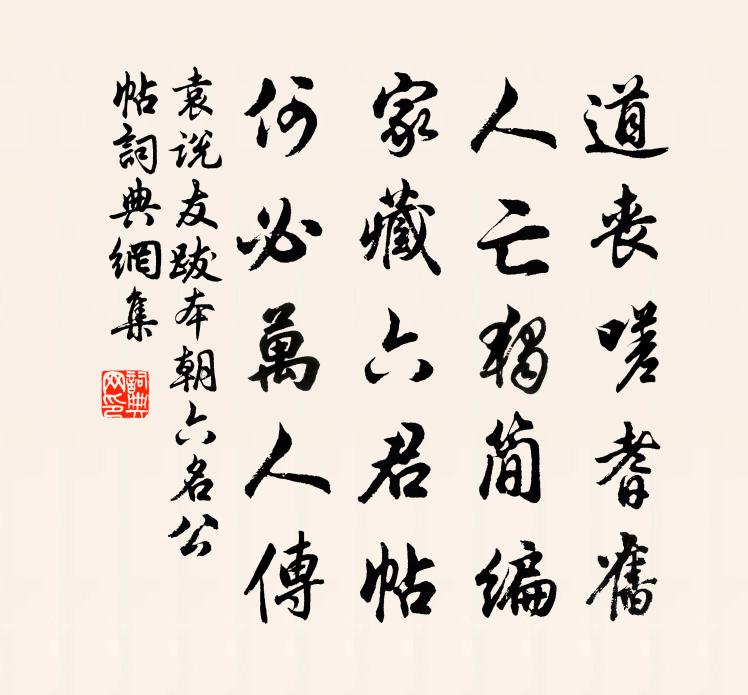 道丧嗟耆舊
人亡獨简編
家藏六君帖
何必萬人傳
袁说友跋本朝六名公
帖詞典網集
詞典
网印